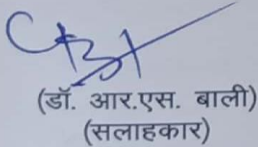 (डॉ. आर.एस. बाली)
(सलाहकार)